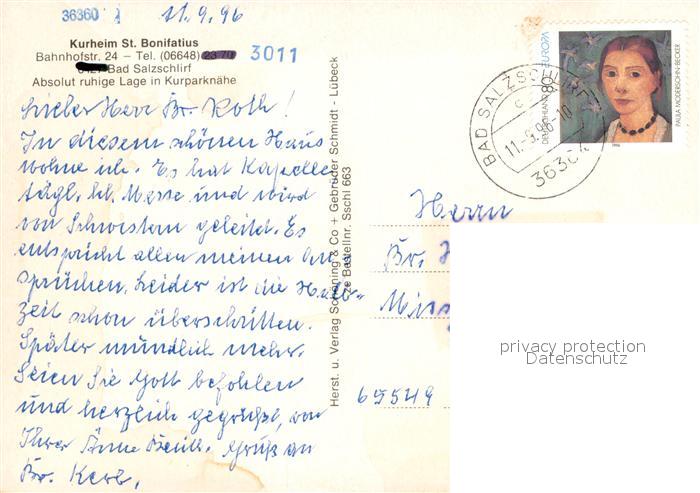 36360 11.9.96
Kurheim St. Bonifatius
Bahnhofstr. 24 – Tel. (06648) 3011
Bad Salzschlirf
Absolut ruhige Lage in Kurparknähe
Lieber Herr Dr. Roth!
In diesem schönen Haus
wohne ich. Es hat Kapelle
tägl. hl. Messe und wird
von Schwestern geleitet. Es
entspricht allen meinen An
sprüchen. Leider ist die Halb-
zeit schon überschritten.
Später mündlich mehr.
Seien Sie Gott befohlen
und herzlich gegrüßt, von
Ihrer Änne Gruß an
Herst. u. Verlag Schöning & Co + Gebrüder Schmidt - Lübeck
Bestellnr. Sschl 663
EUROPA
DEUTSCHLAND 80
PAULA MODERSOHN-BECKER
1996
BAD SALZSCHLIRF
11.-9.96-10
36364
Herrn
65549
privacy protection
Datenschutz